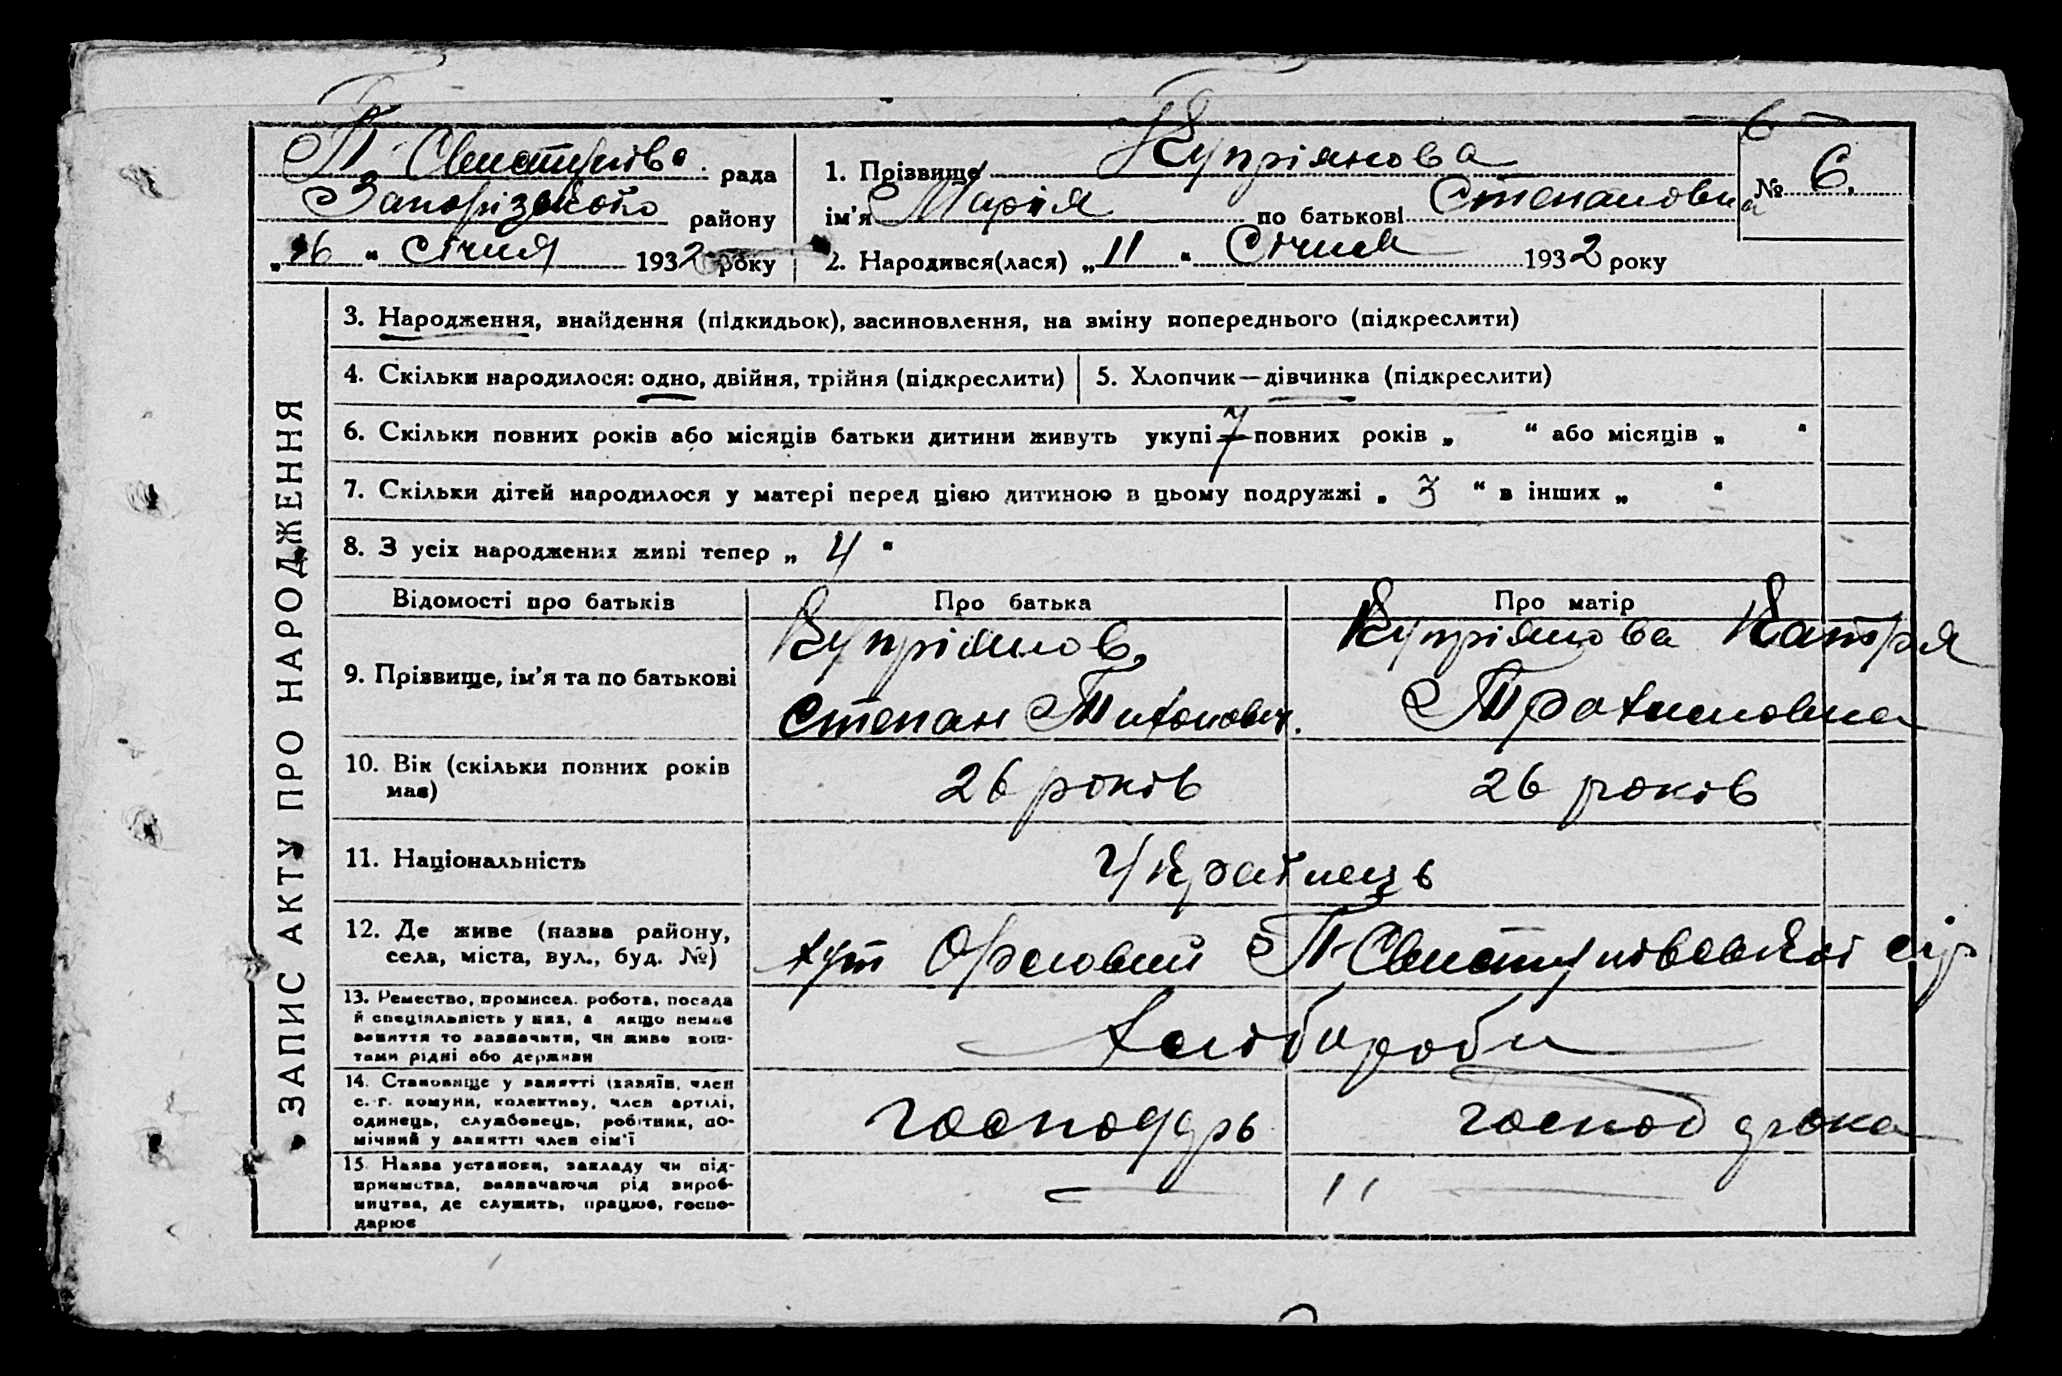 П. Свистунівс. рада
Запорізького району
„16“ Січня 1932 року
1. Прізвище Купріянова
ім'я Марія по батькові Степановна
№ 6.
2. Народився(лася) „11“ Січня 1932 року
ЗАПИС АКТУ ПРО НАРОДЖЕННЯ
3. Народження, знайдення (підкидьок), засиновлення, на зміну попереднього (підкреслити)
4. Скільки народилося: одно, двійня, трійня (підкреслити)
5. Хлопчик—дівчинка (підкреслити)
6. Скільки повних років або місяців батьки дитини живуть укупі 7 повних років „ “ або місяців „ “
7. Скільки дітей народилося у матері перед цією дитиною в цьому подружжі „ 3 “ в інших „ “
8. З усіх народжених живі тепер „ 4 “
Відомості про батьків
Про батька
Про матір
9. Прізвище, ім'я та по батькові
Купріянов
Степан Тихонович.
Купріянова Катря
Трохимовна
10. Вік (скільки повних років
має)
26 років
26 років
11. Національність
Українець
12. Де живе (назва району,
села, міста, вул., буд. №)
хут П-Свистунівської с/р
13. Ремество, промисел, робота, посада
й спеціяльність у них, а якщо немає
заняття то зазначити, чи живе кош-
тами рідні або держави
Хліборобы
14. Становище у занятті (хазяїн, член
с.-г. комуни, колективу, член артілі,
одинець, службовець, робітник, по-
мічний у занятті член сім'ї
господарь
господарка
15. Назва установи, закладу чи під-
приємства, зазначаючи рід вироб-
ництва, де служить, працює, госпо-
дарює